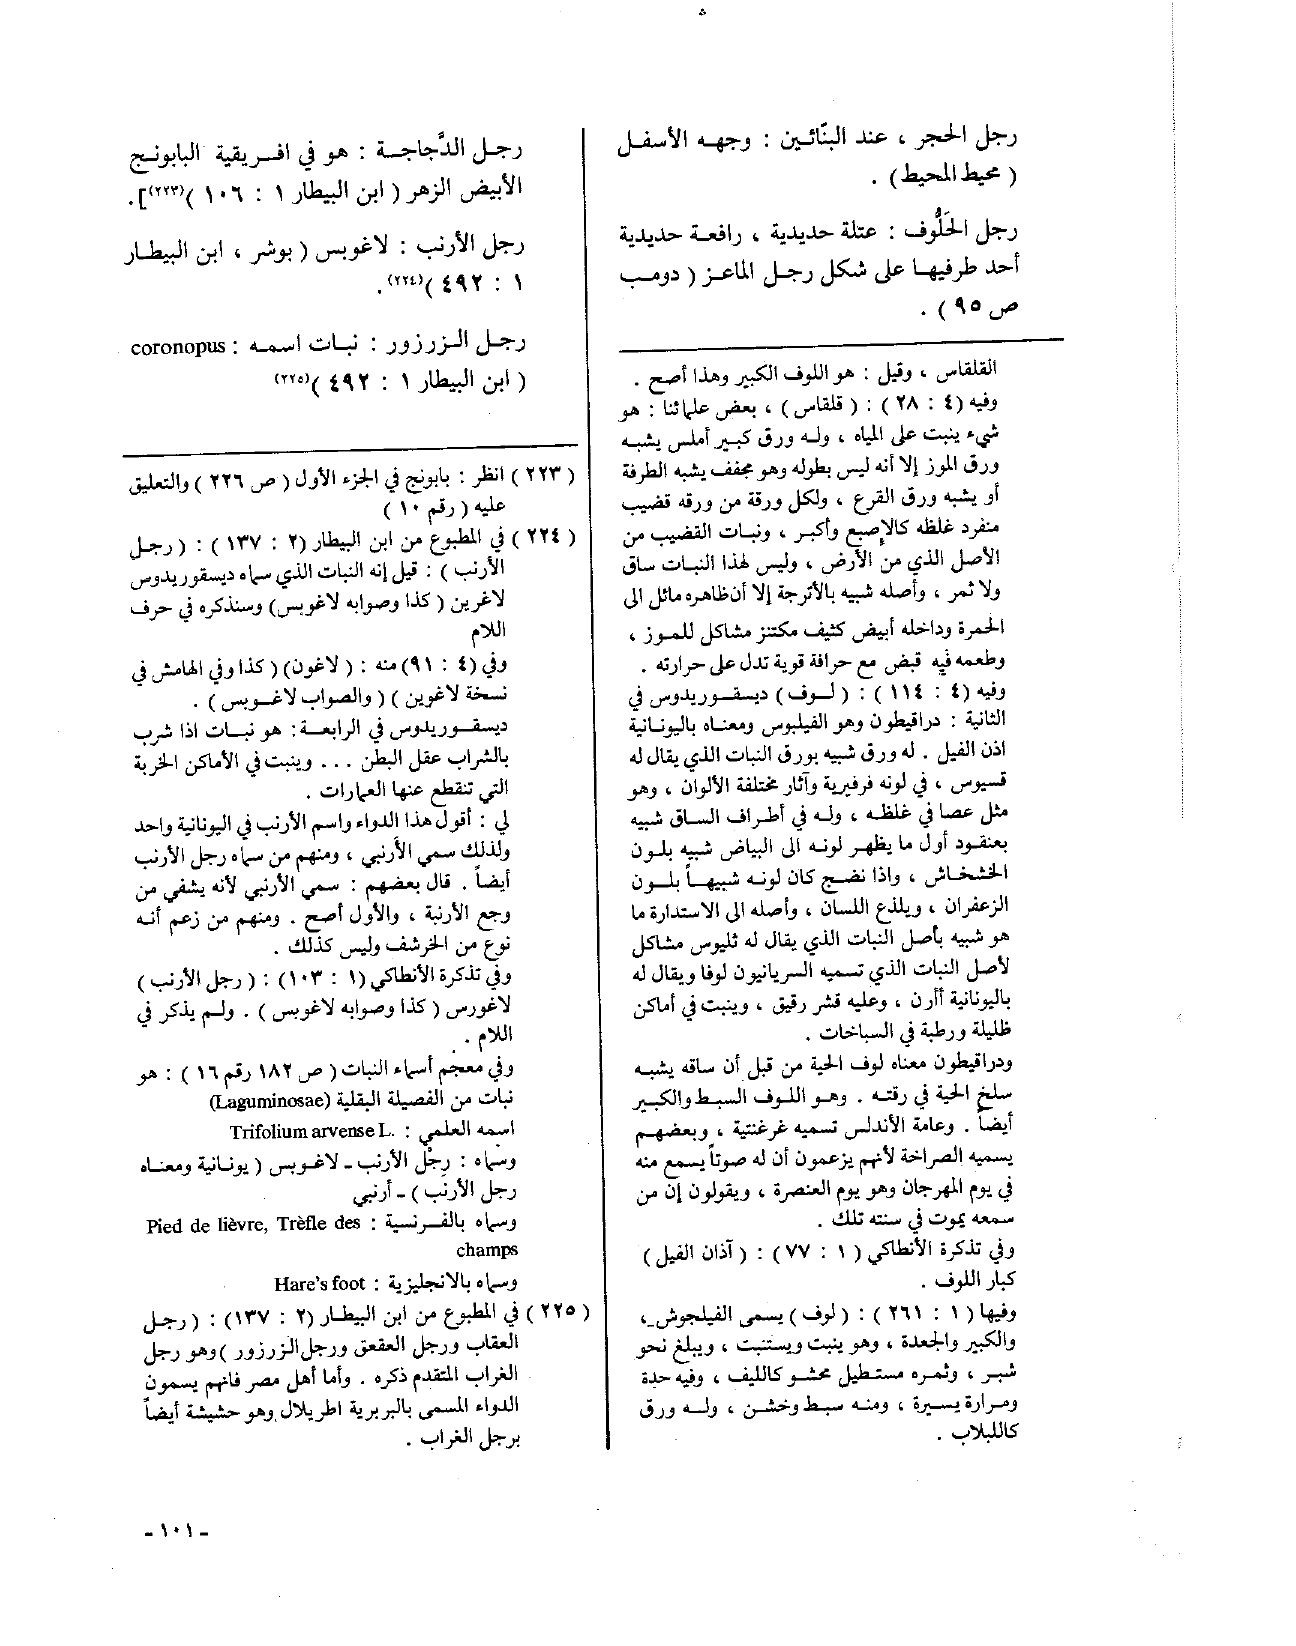 رجل الحجر ، عند البنّائين : وجهه الأسفل
( محيط المحيط ) .
رجل الحَلُّوف : عتلة حديدية ، رافعة حديدية
أحد طرفيها على شكل رجل الماعز ( دومب
ص ٩٥ ) .
القلقاس ، وقيل : هو اللوف الكبير وهذا أصح .
وفيه ( ٤ : ٢٨ ) : ( قلقاس ) ، بعض علمائنا : هو
شيء ينبت على المياه ، وله ورق كبير أملس يشبه
ورق الموز إلا أنه ليس بطوله وهو مجفف يشبه الطرفة
أو يشبه ورق القرع ، ولكل ورقة من ورقه قضيب
منفرد غلظه كالإصبع وأكبر ، ونبات القضيب من
الأصل الذي من الأرض ، وليس لهذا النبات ساق
ولا ثمر ، وأصله شبيه بالأترجة إلا أن ظاهره مائل الى
الحمرة وداخله أبيض كثيف مكتنز مشاكل للموز ،
وطعمه فيه قبض مع حرافة قوية تدل على حرارته .
وفيه ( ٤ : ١١٤ ) : ( لوف ) ديسقوريدوس في
الثانية : دراقيطون وهو الفيلبوس ومعناه باليونانية
اذن الفيل . له ورق شبيه بورق النبات الذي يقال له
قسيوس ، في لونه فرفيرية وآثار مختلفة الألوان ، وهو
مثل عصا في غلظه ، وله في أطراف الساق شبيه
بعنقود أول ما يظهر لونه الى البياض شبيه بلون
الخشخاش ، واذا نضج كان لونه شبيهاً بلون
الزعفران ، ويلذع اللسان ، وأصله الى الاستدارة ما
هو شبيه بأصل النبات الذي يقال له ثليوس مشاكل
لأصل النبات الذي تسميه السريانيون لوفا ويقال له
باليونانية أأرن ، وعليه قشر رقيق ، وينبت في أماكن
ظليلة ورطبة في السباخات .
ودراقيطون معناه لوف الحية من قبل أن ساقه يشبه
سلخ الحية في رقته . وهو اللوف السبط والكبير
أيضاً . وعامة الأندلس تسميه غرغنتية ، وبعضهم
يسميه الصراخة لأنهم يزعمون أن له صوتاً يسمع منه
في يوم المهرجان وهو يوم العنصرة ، ويقولون إن من
سمعه يموت في سنته تلك .
وفي تذكرة الأنطاكي ( ١ : ٧٧ ) : ( آذان الفيل )
كبار اللوف .
وفيها ( ١ : ٢٦١ ) : ( لوف ) يسمى الفيلجوش ،
والكبير والجعدة ، وهو ينبت ويستنبت ، ويبلغ نحو
شبر ، وثمره مستطيل محشو كالليف ، وفيه حدة
ومرارة يسيرة ، ومنه سبط وخشن ، وله ورق
كاللبلاب .
رجل الدَّجاجة : هو في افريقية البابونج
الأبيض الزهر ( ابن البيطار ١ : ١٠٦ )(٢٢٣)].
رجل الأرنب : لاغوبس ( بوشر ، ابن البيطار
١ : ٤٩٢ )(٢٢٤).
رجل الزرزور : نبات اسمه : coronopus
( ابن البيطار ١ : ٤٩٢ )(٢٢٥)
( ٢٢٣ ) انظر : بابونج في الجزء الأول ( ص ٢٢٦ ) والتعليق
عليه ( رقم ١٠ )
( ٢٢٤ ) في المطبوع من ابن البيطار ( ٢ : ١٣٧ ) : ( رجل
الأرنب ) : قيل إنه النبات الذي سماه ديسقوريدوس
لاغرين ( كذا وصوابه لاغوبس ) وسنذكره في حرف
اللام
وفي ( ٤ : ٩١ ) منه : ( لاغون ) ( كذا وفي الهامش في
نسخة لاغوين ) ( والصواب لاغوبس ) .
ديسقوريدوس في الرابعة : هو نبات اذا شرب
بالشراب عقل البطن ... وينبت في الأماكن الخربة
التي تنقطع عنها العمارات .
لي : أقول هذا الدواء واسم الأرنب في اليونانية واحد
ولذلك سمي الأرنبي ، ومنهم من سماه رجل الأرنب
أيضاً . قال بعضهم : سمي الأرنبي لأنه يشفي من
وجع الأرنبة ، والأول أصح . ومنهم من زعم أنه
نوع من الخرشف وليس كذلك .
وفي تذكرة الأنطاكي ( ١ : ١٠٣ ) : ( رجل الأرنب )
لاغورس ( كذا وصوابه لاغوبس ) . ولم يذكر في
اللام .
وفي معجم أسماء النبات ( ص ١٨٢ رقم ١٦ ) : هو
نبات من الفصيلة البقلية (Laguminosae)
اسمه العلمي : Trifolium arvense L.
وسماه : رِجْل الأرنب - لاغوبس ( يونانية ومعناه
رجل الأرنب ) - أرنبي
وسماه بالفرنسية : Pied de lièvre, Trèfle des
champs
وسماه بالانجليزية : Hare's foot
( ٢٢٥ ) في المطبوع من ابن البيطار ( ٢ : ١٣٧ ) : ( رجل
العقاب ورجل العقعق ورجل الزرزور ) وهو رجل
الغراب المتقدم ذكره . وأما أهل مصر فانهم يسمون
الدواء المسمى بالبربرية اطريلال وهو حشيشة أيضاً
برجل الغراب .
- ١٠١ -